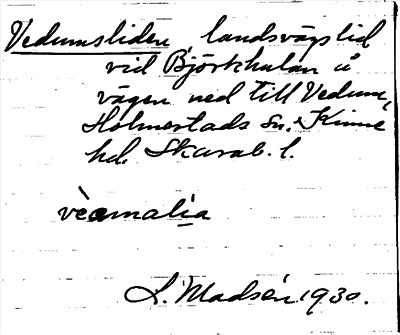 Vedumsliden landsvägslid
vid Björkkulan å
vägen ned till Vedum,
Holmestads sn. Kinne
hd. Skarab. l.
L. Madsén 1930.